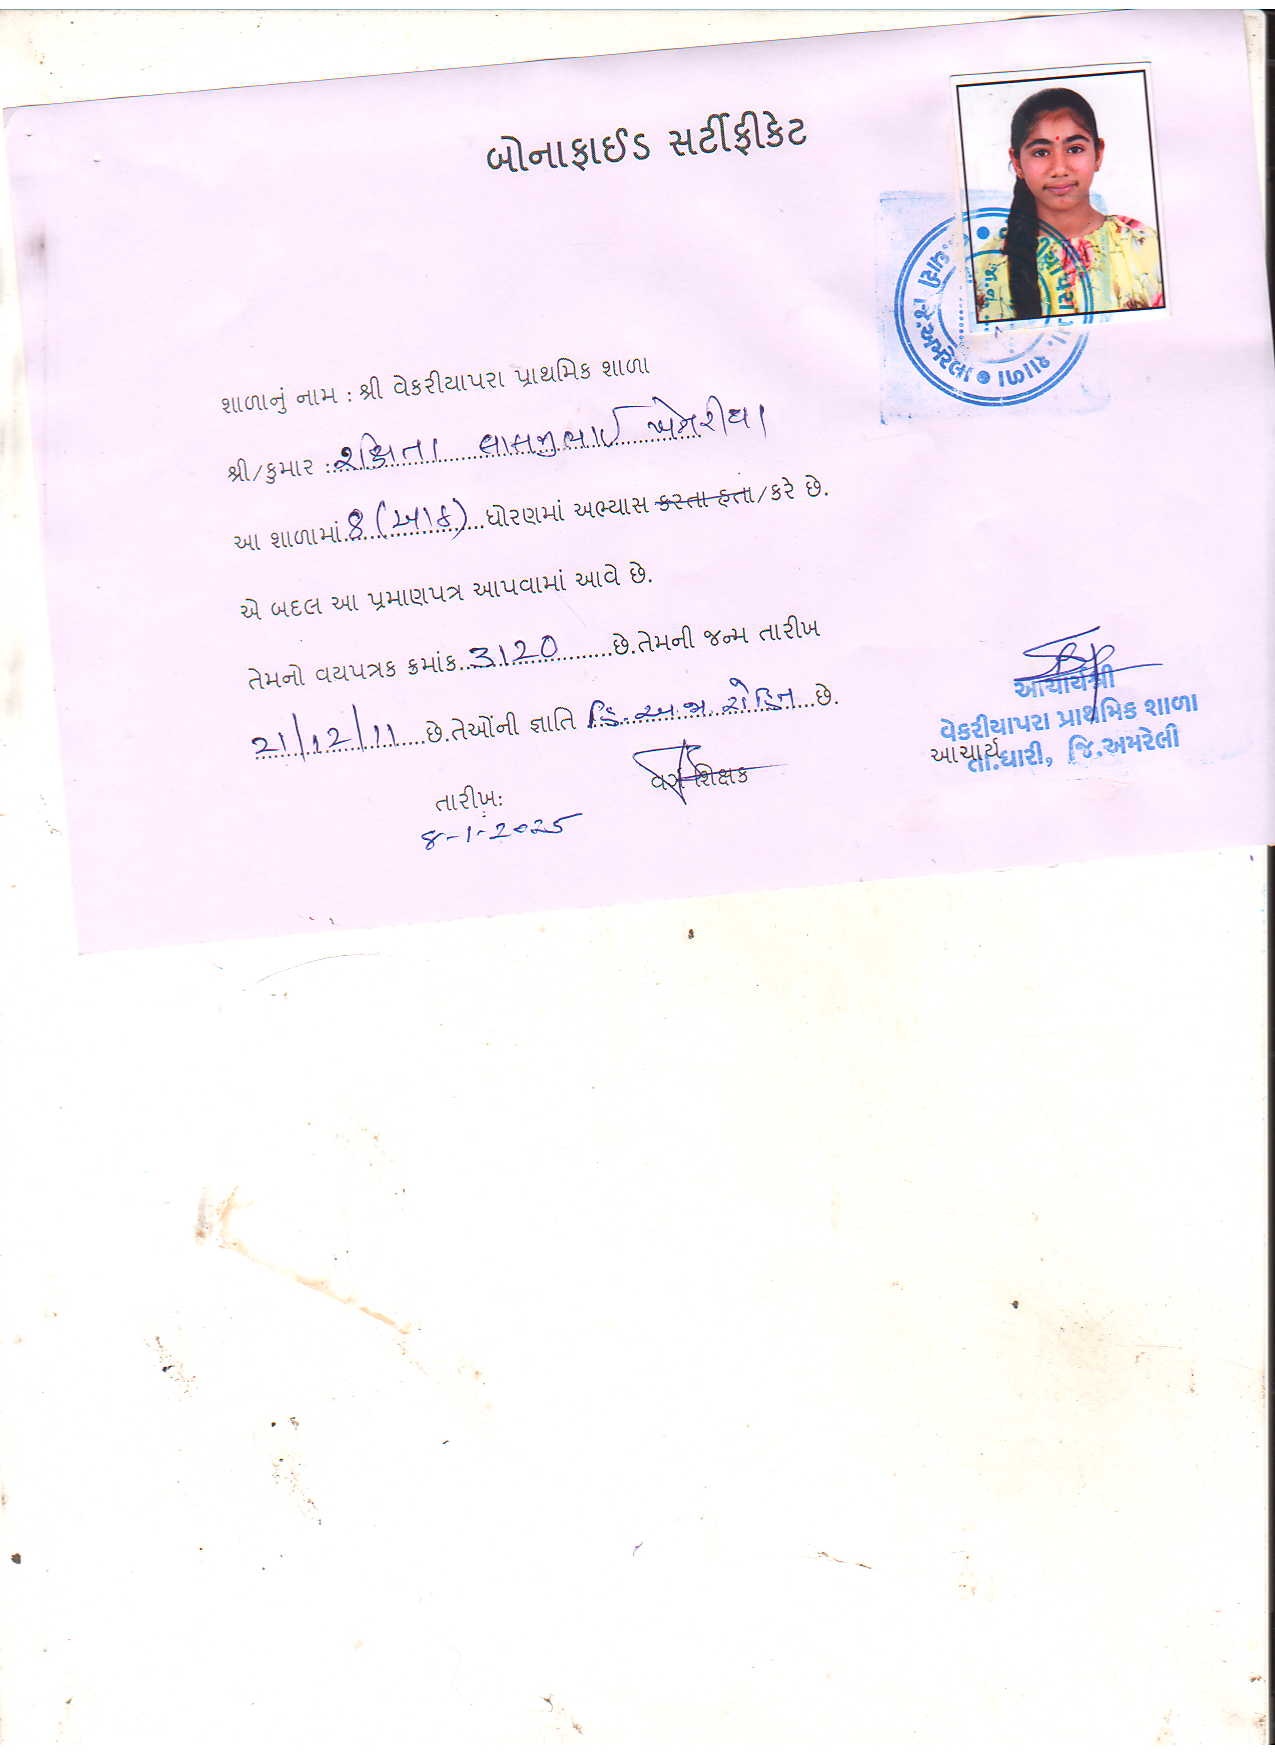 બોનાફાઈડ સર્ટીફીકેટ
શાળાનું નામ : શ્રી વેકરીયાપરા પ્રાથમિક શાળા
શ્રી/કુમાર : રક્ષિતા
આ શાળામાં 8 (આઠ) ધોરણમાં અભ્યાસ કરતા હતા/કરે છે.
એ બદલ આ પ્રમાણપત્ર આપવામાં આવે છે.
તેમનો વયપત્રક ક્રમાંક 3120 છે.તેમની જન્મ તારીખ
21/12/11 છે.તેઓની જ્ઞાતિ છે.
તારીખ:
8-1-2025
વર્ગ શિક્ષક
આચાર્યશ્રી
વેકરીયાપરા પ્રાથમિક શાળા
આચાર્ય
તા.ધારી, જિ.અમરેલી